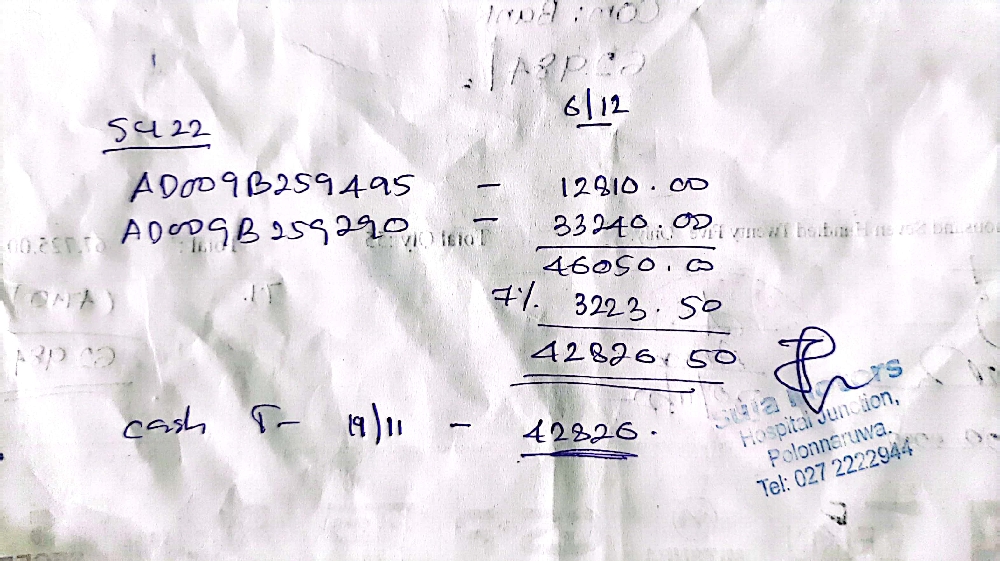 6/12
5422
AD009B259495 - 12810.00
AD009B259290 - 33240.00
46050.00
7% 3223.50
42826.50
cash T- 19/11 - 42826.
Motors
Hospital Junction,
Polonnaruwa.
Tel: 027 2222944